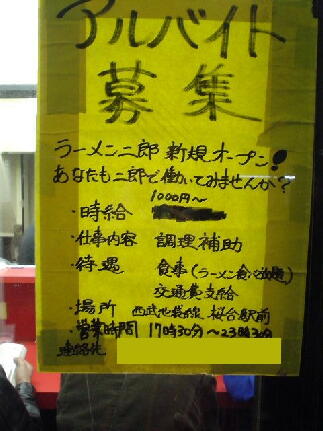 アルバイト
募集
ラーメン二郎 新規オープン!
あなたも二郎で働いてみませんか?
1000円〜
・時給
・仕事内容 調理補助
・待遇 食事(ラーメン食べ放題)
交通費支給
・場所 西武池袋線 桜台駅前
・営業時間 17時30分〜23時30分
連絡先